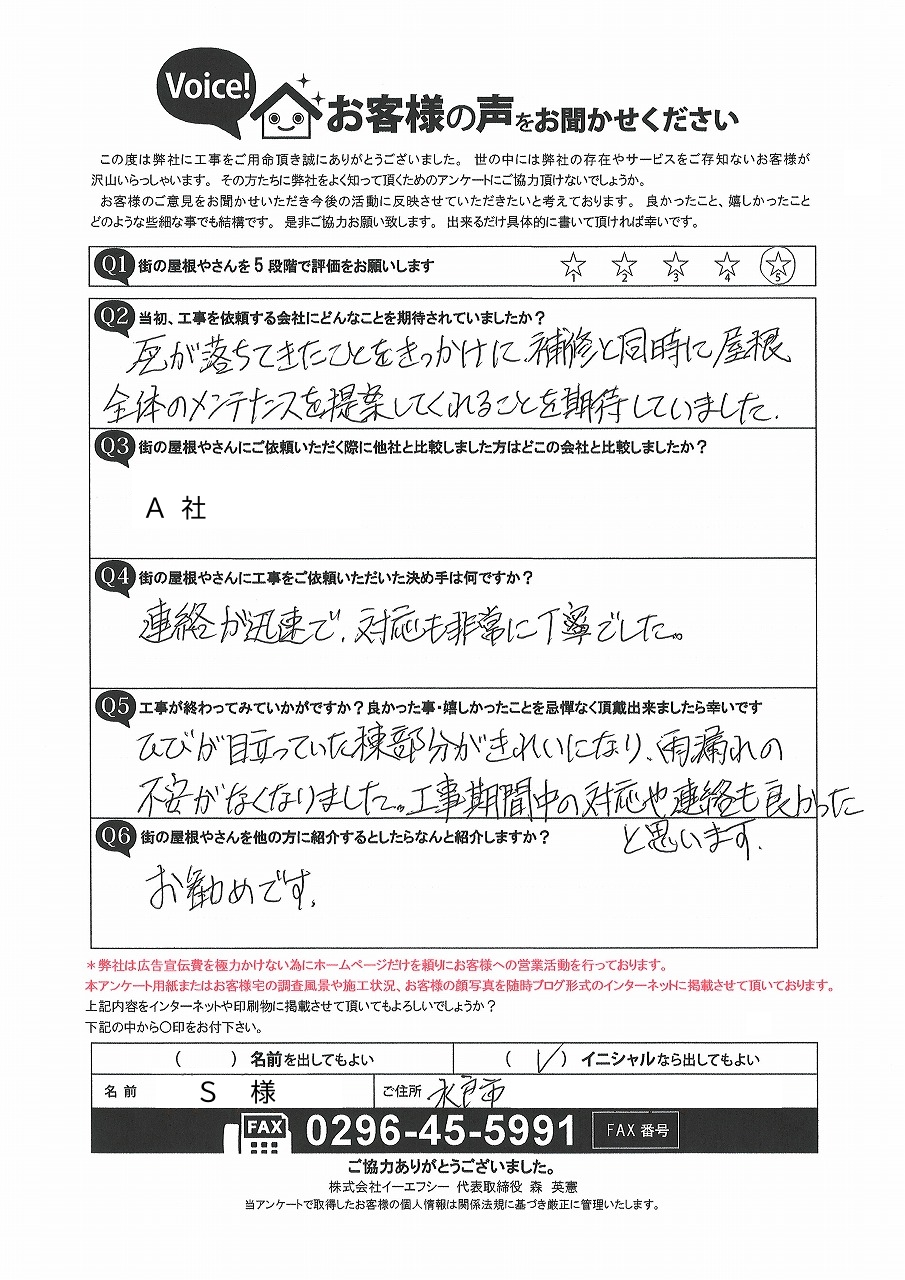 Voice!
お客様の声をお聞かせください
この度は弊社に工事をご用命頂き誠にありがとうございました。 世の中には弊社の存在やサービスをご存知ないお客様が
沢山いらっしゃいます。 その方たちに弊社をよく知って頂くためのアンケートにご協力頂けないでしょうか。
お客様のご意見をお聞かせいただき今後の活動に反映させていただきたいと考えております。 良かったこと、嬉しかったこと
どのような些細な事でも結構です。 是非ご協力お願い致します。 出来るだけ具体的に書いて頂ければ幸いです。
Q1 街の屋根やさんを5段階で評価をお願いします ☆1 ☆2 ☆3 ☆4 ☆5
Q2 当初、工事を依頼する会社にどんなことを期待されていましたか?
瓦が落ちてきたことをきっかけに、補修と同時に屋根
全体のメンテナンスを提案してくれることを期待していました.
Q3 街の屋根やさんにご依頼いただく際に他社と比較しました方はどこの会社と比較しましたか?
A 社
Q4 街の屋根やさんに工事をご依頼いただいた決め手は何ですか?
連絡が迅速で、対応も非常に丁寧でした。
Q5 工事が終わってみていかがですか?良かった事・嬉しかったことを忌憚なく頂戴出来ましたら幸いです
ひびが目立っていた棟部分がきれいになり、雨漏れの
不安がなくなりました。工事期間中の対応や連絡も良かった
と思います.
Q6 街の屋根やさんを他の方に紹介するとしたらなんと紹介しますか?
お勧めです.
*弊社は広告宣伝費を極力かけない為にホームページだけを頼りにお客様への営業活動を行っております。
本アンケート用紙またはお客様宅の調査風景や施工状況、お客様の顔写真を随時ブログ形式のインターネットに掲載させて頂いております。
上記内容をインターネットや印刷物に掲載させて頂いてもよろしいでしょうか?
下記の中から〇印をお付下さい。
( ) 名前を出してもよい (✓) イニシャルなら出してもよい
名前 S 様 ご住所 水戸市
FAX 0296-45-5991 FAX 番号
ご協力ありがとうございました。
株式会社イーエフシー 代表取締役 森 英憲
当アンケートで取得したお客様の個人情報は関係法規に基づき厳正に管理いたします。